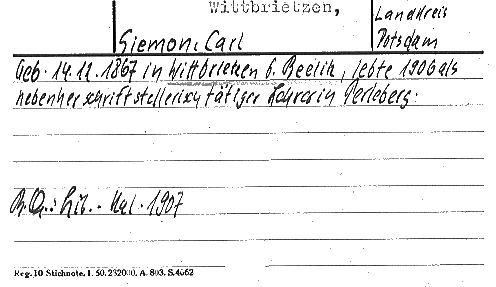 Wittbrietzen,
Landkreis
Potsdam
Siemon, Carl
Geb. 14.11.1867 in Wittbrietzen b. Beelitz, lebte 1906 als
nebenher schriftstellerisch tätiger Lehrer in Perleberg.
B.Qu.: Lit.-Kal. 1907
Reg. 10 Stichnote. I. 50. 232000. A. 803. S. 4662